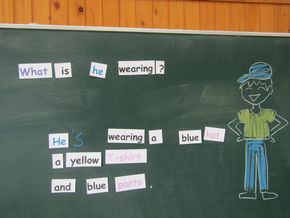 What is he wearing?
He's wearing a blue hat,
a yellow T-shirts
and blue pants.